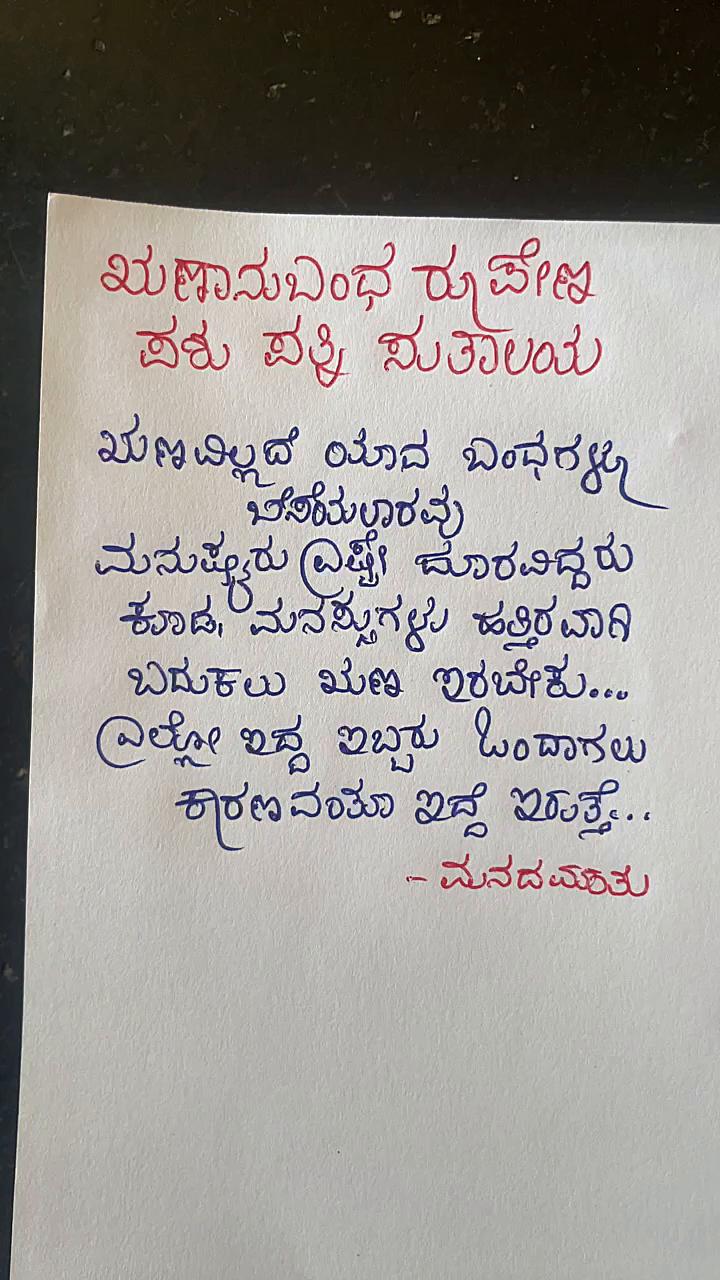 ಋಣಾನುಬಂಧ ರೂಪೇಣ
ಪಶು ಪತ್ನಿ ಸುತಾಲಯ
ಋಣವಿಲ್ಲದೆ ಯಾವ ಬಂಧಗಳೂ
ಬೆಸೆಯಲಾರವು
ಮನುಷ್ಯರು ಎಷ್ಟೇ ದೂರವಿದ್ದರು
ಕೂಡ, ಮನಸ್ಸುಗಳು ಹತ್ತಿರವಾಗಿ
ಬದುಕಲು ಋಣ ಇರಬೇಕು...
ಎಲ್ಲೋ ಇದ್ದ ಇಬ್ಬರು ಒಂದಾಗಲು
ಕಾರಣವಂತೂ ಇದ್ದೆ ಇರುತ್ತೆ...
- ಮನದ ಮಾತು